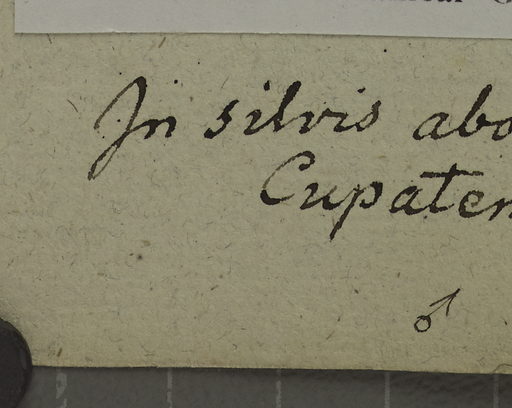 In silvis abo
Cupaten
♂